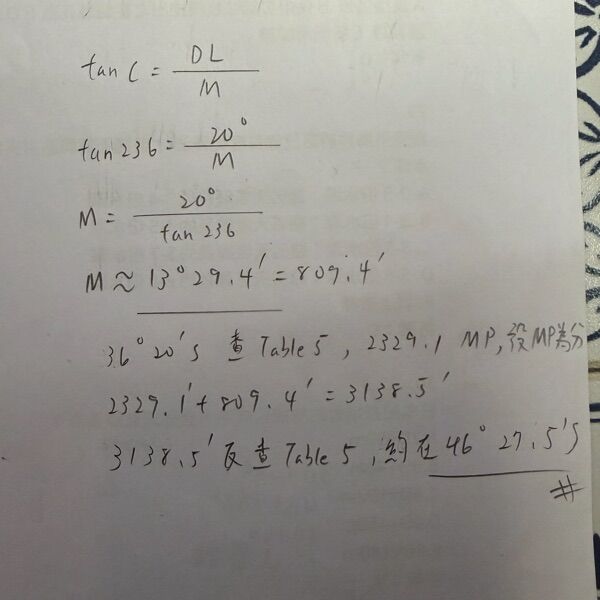 tan C = DL / M
tan 236 = 20° / M
M = 20° / tan 236
M ≈ 13° 29.4' = 809.4'
36° 20'S 查 Table 5, 2329.1 MP, 設MP為分
2329.1' + 809.4' = 3138.5'
3138.5' 反查 Table 5, 約在 46° 27.5'S
#